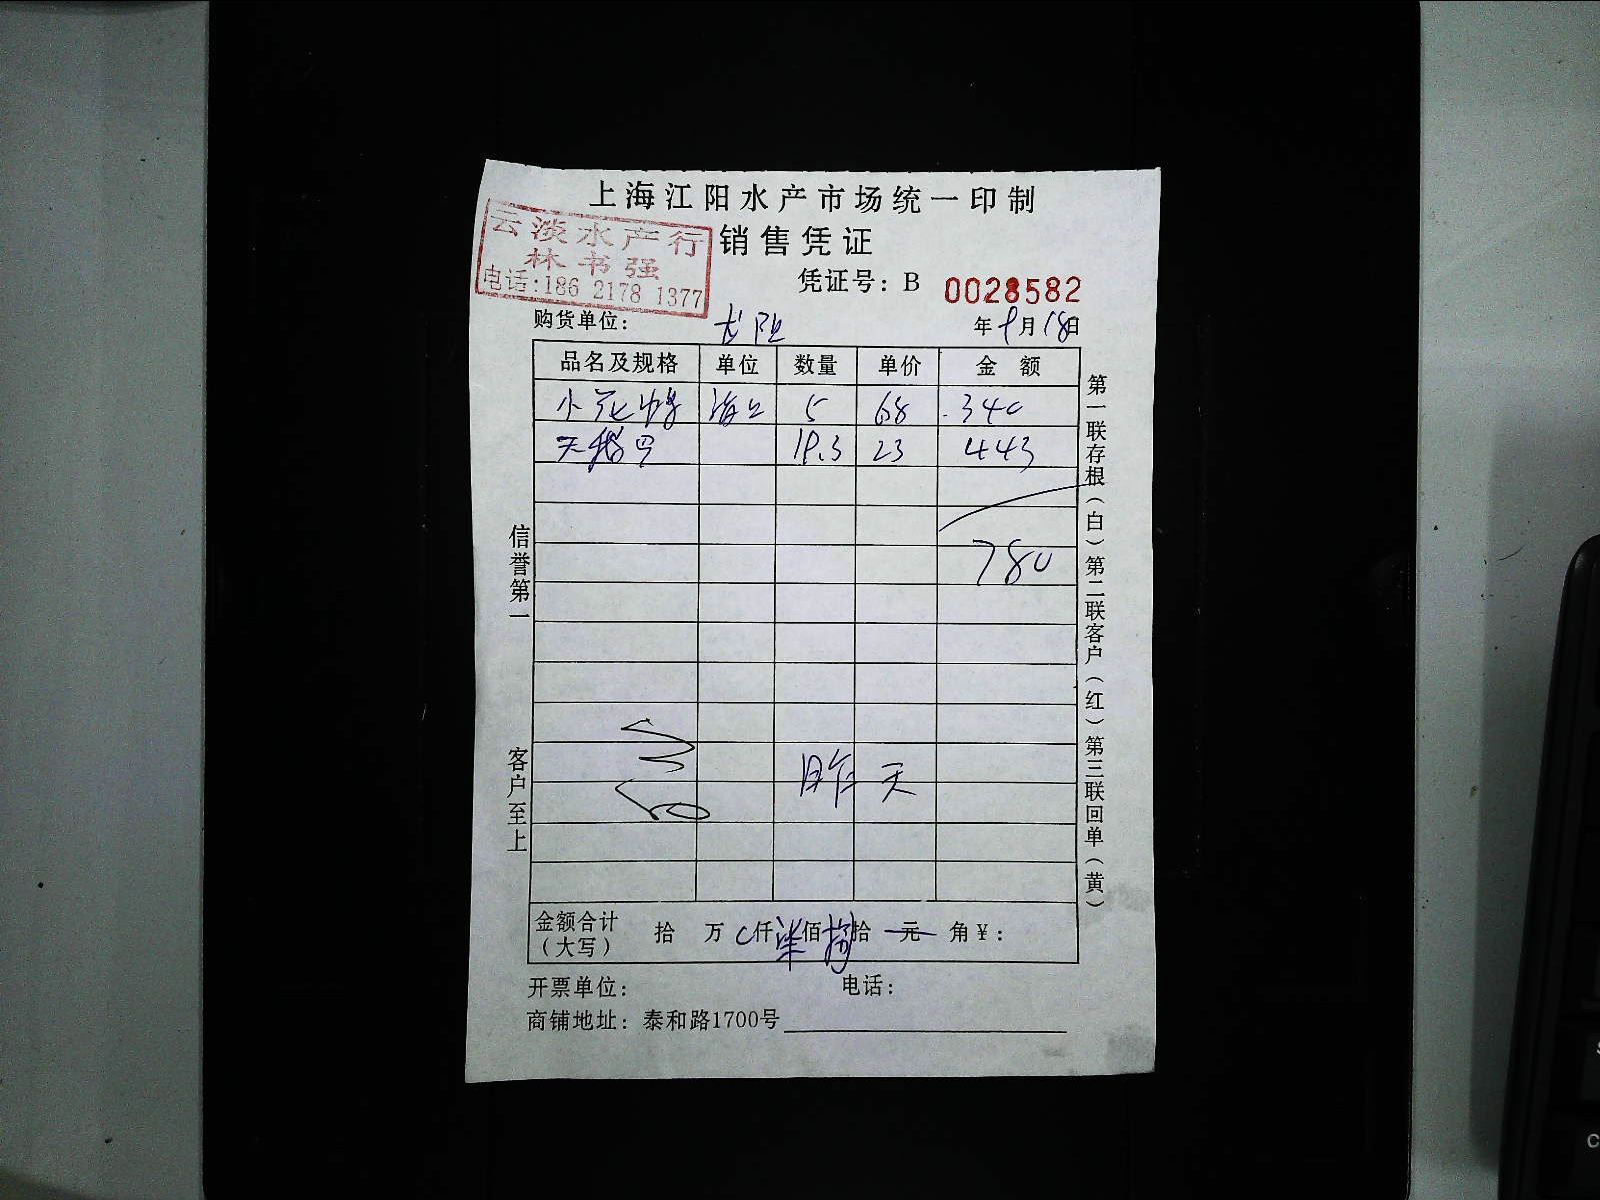 上海江阳水产市场统一印制
云淡水产行
林书强
电话:186 2178 1377
销售凭证
凭证号: B 0028582
购货单位: 长阳 年 9月18日
品名及规格 单位 数量 单价 金额
小花 5 68 340
天鹅 19.3 23 443
780
昨天
金额合计(大写) 拾 万 0仟柒佰捌拾 元 角¥:
开票单位: 电话:
商铺地址: 泰和路1700号
信誉第一
客户至上
第一联存根(白)第二联客户(红)第三联回单(黄)